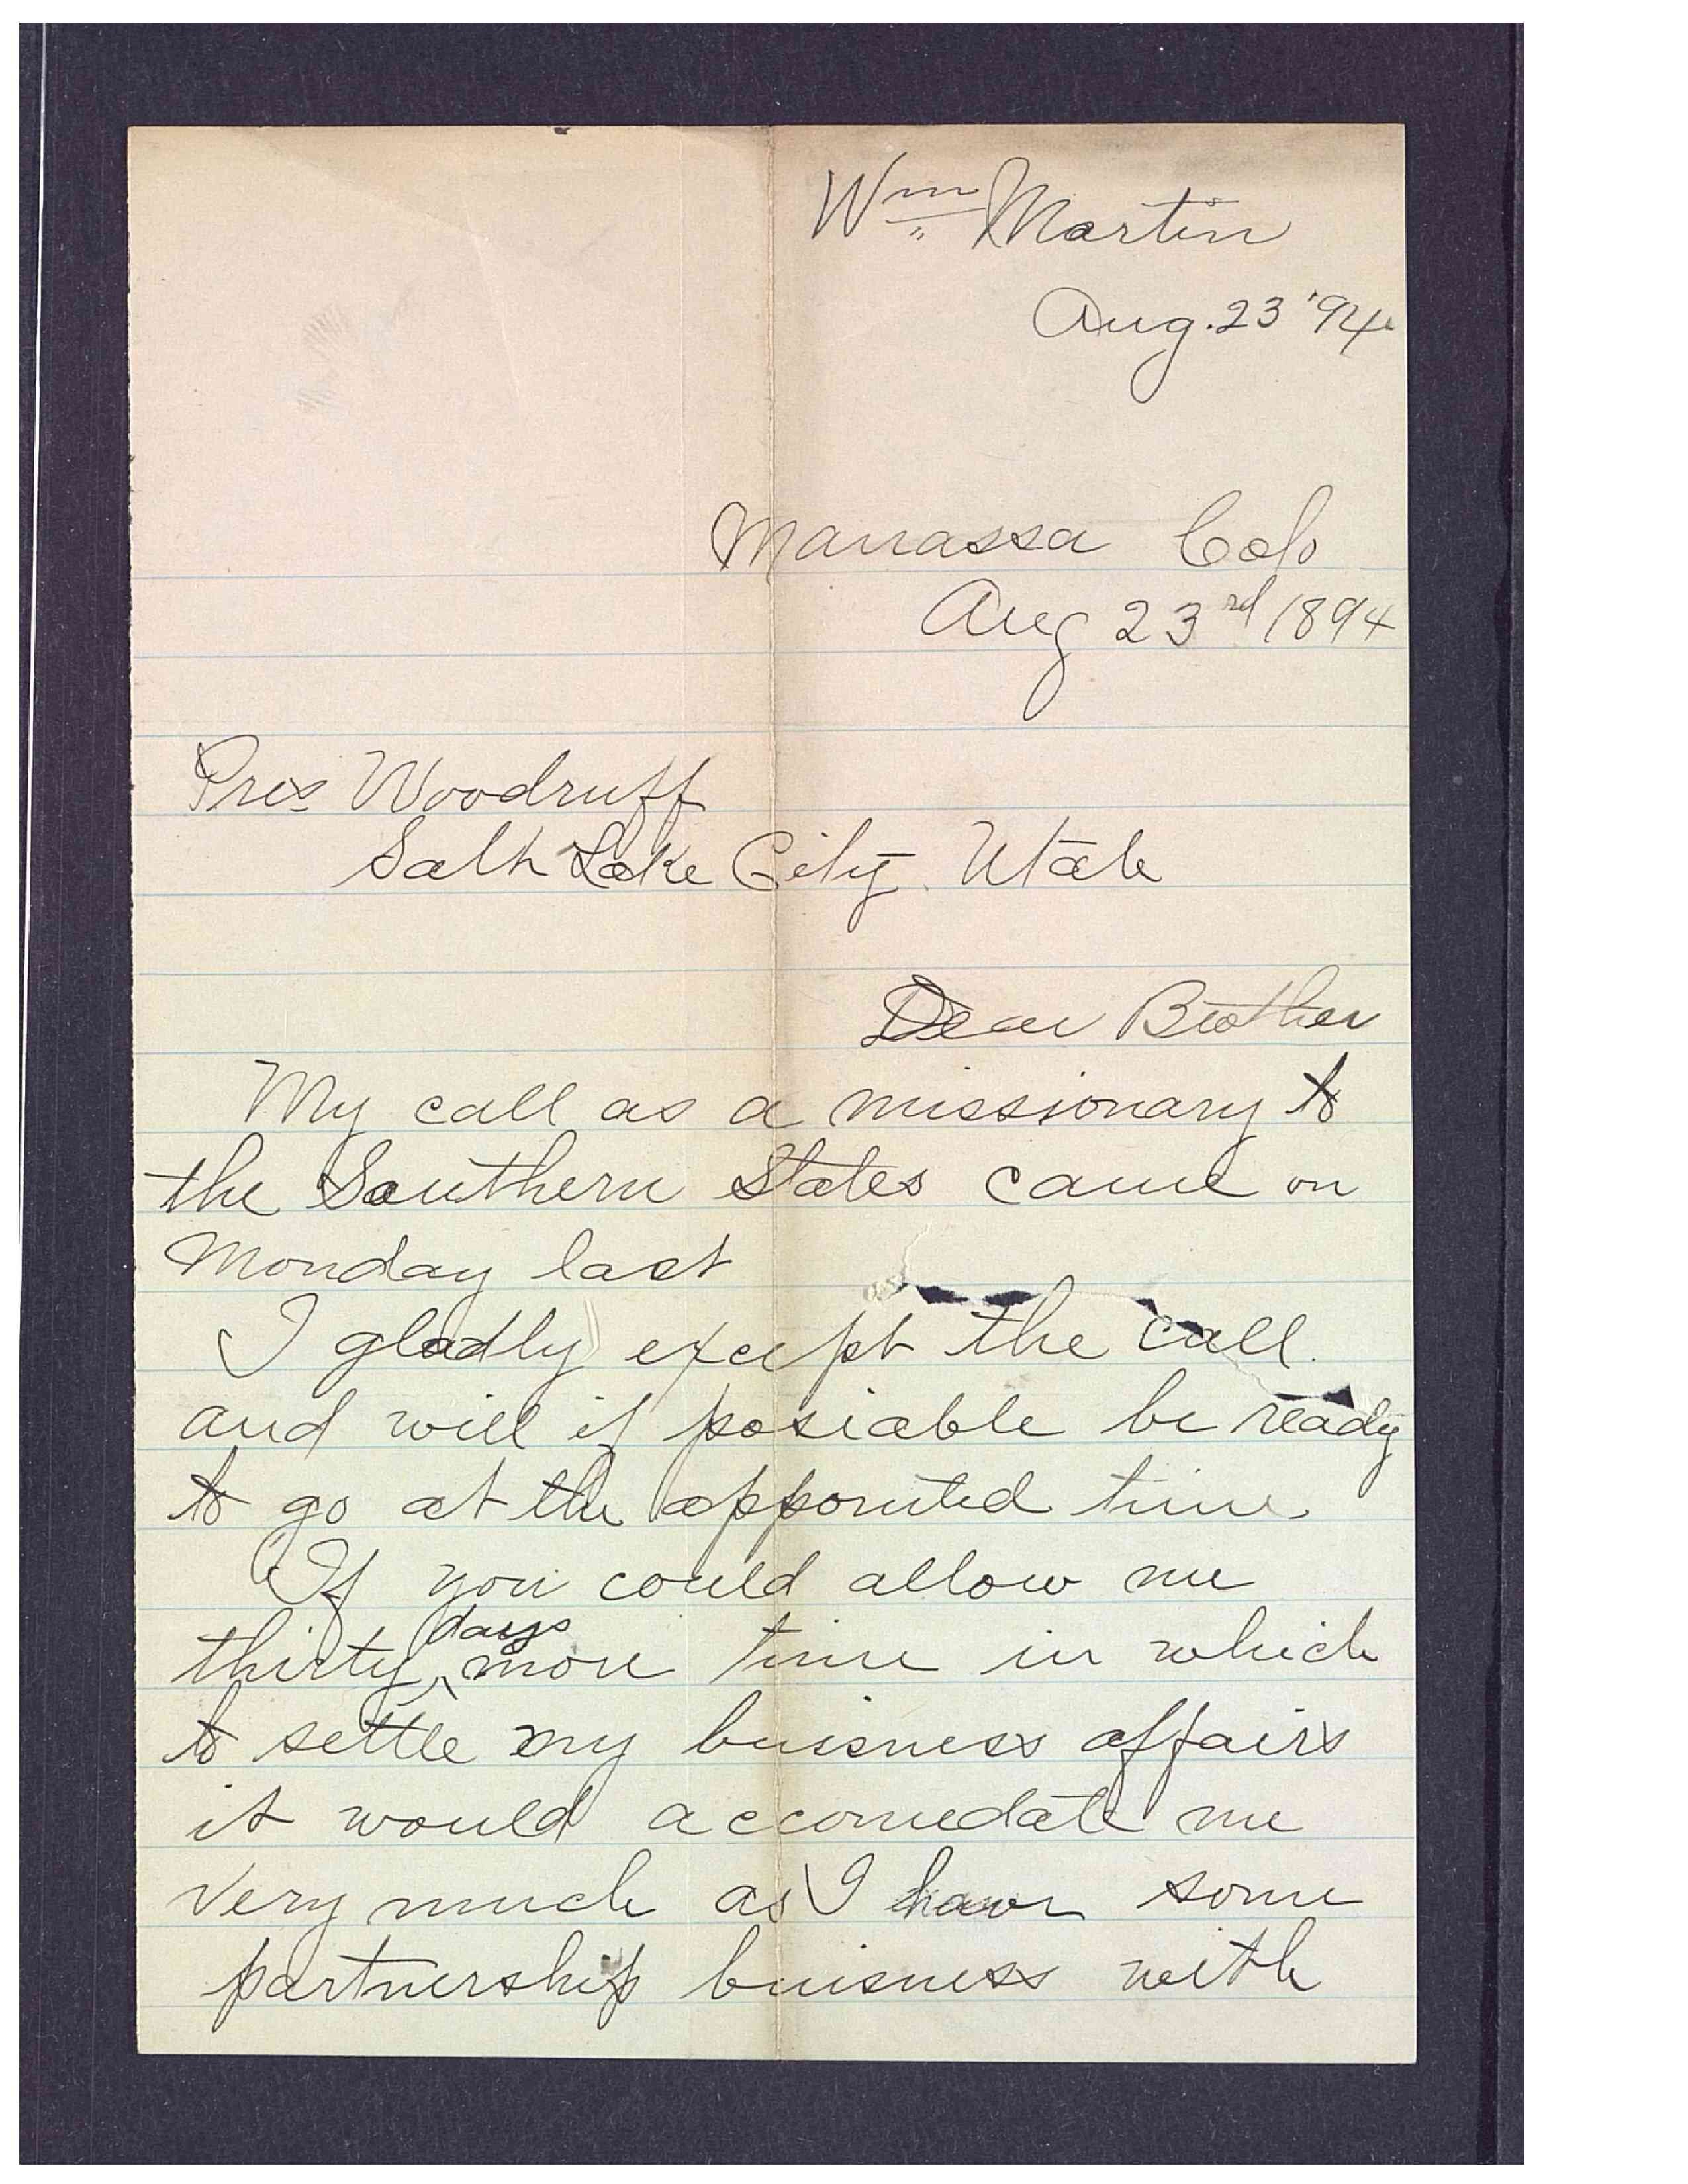 Wm Martin
Aug. 23 '94
Manassa Colo
Aug 23rd 1894
Pres Woodruff
Salt Lake City. Utah
Dear Brother
My call as a missionary to
the Southern States came on
Monday last
I gladly except the call
and will if posiable be ready
to go at the appointed time.
If you could allow me
thirty days more time in which
to settle my buisness affairs
it would accomedate me
very much as I have some
partnership buisness with